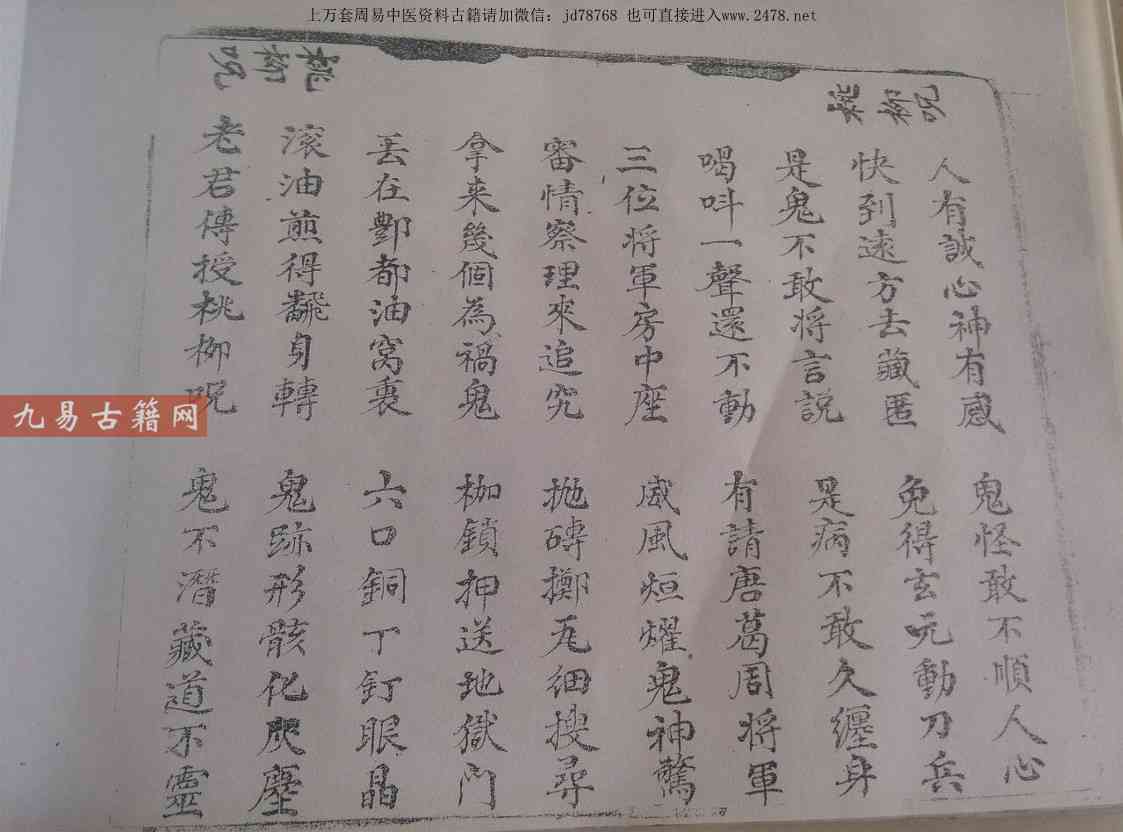 上万套周易中医资料古籍请加微信：jd78768 也可直接进入www.2478.net
人有誠心神有感 鬼怪敢不順人心
快到遠方去藏匿 免得玄元動刀兵
是鬼不敢将言説 是病不敢久纏身
喝呌一聲還不動 有請唐葛周将軍
三位将軍房中座 威風烜耀鬼神驚
審情察理來追究 抛磚擲瓦細搜尋
拿来幾個為禍鬼 枷鎖押送地獄門
丟在酆都油窩裏 六口銅丁釘眼晶
滚油煎得飜身轉 鬼跡形骸化灰塵
老君傳授桃柳呪 鬼不潛藏道不靈
九易古籍网